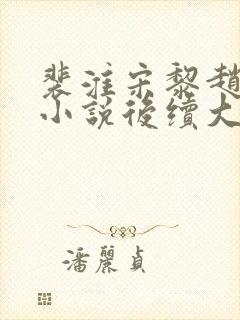 裴淮宋黎趙
小說後續大
潘麗貞